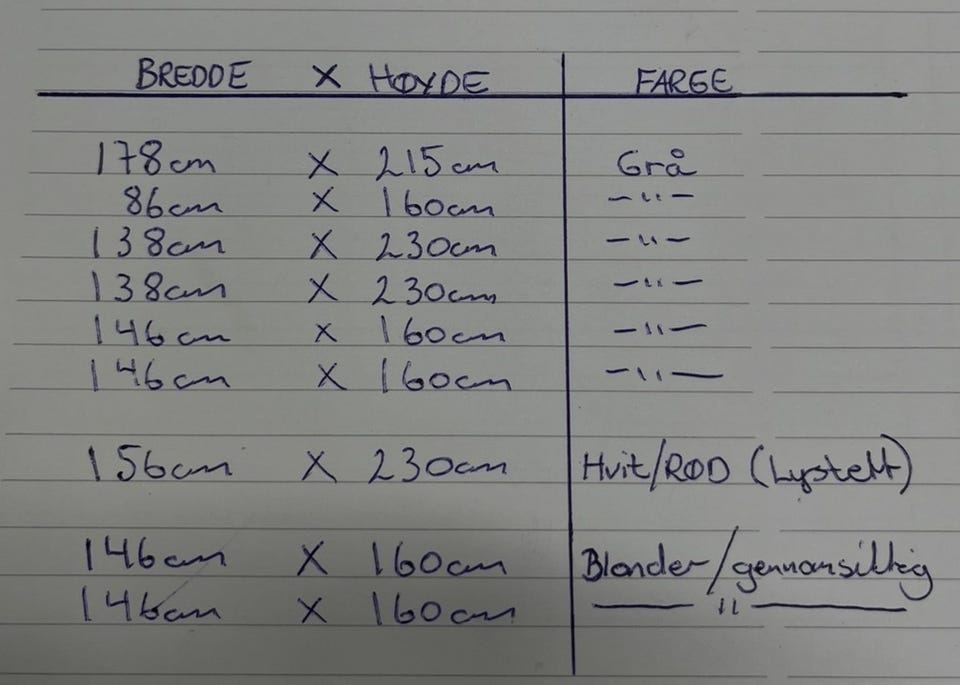 BREDDE X HØYDE FARGE
178cm X 215cm Grå
86cm X 160cm -"-
138cm X 230cm -"-
138cm X 230cm -"-
146cm X 160cm -"-
146cm X 160cm -"-
156cm X 230cm Hvit/RØD (Lystett)
146cm X 160cm Blonder/gennomsiktig
146cm X 160cm -"-